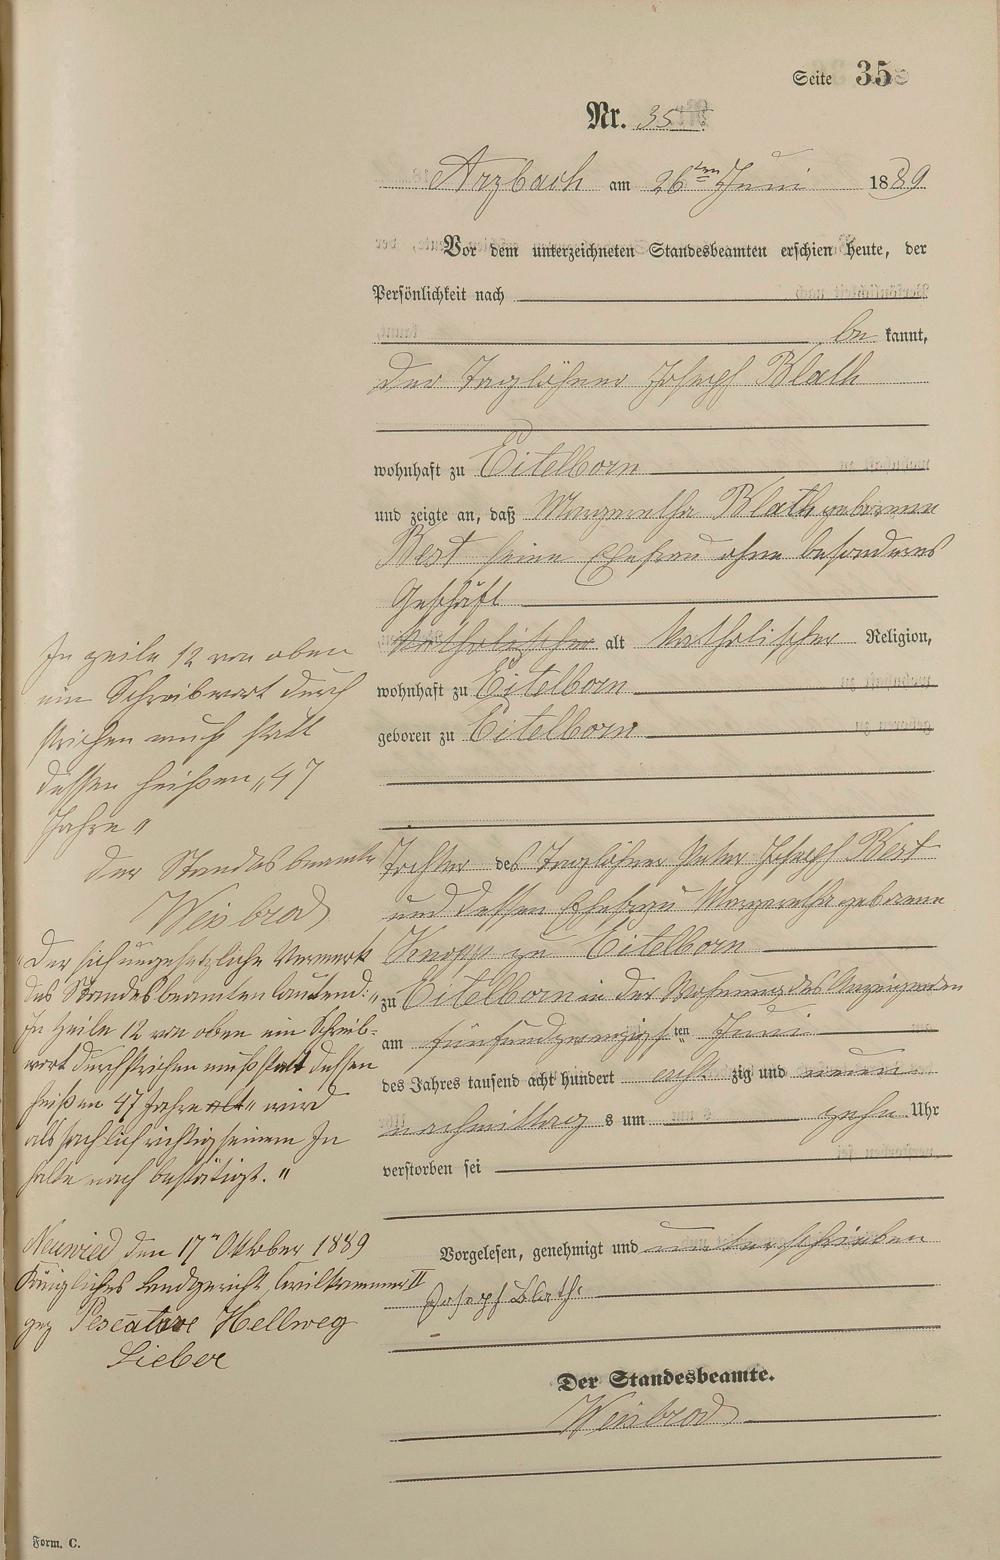 Seite 35
Nr. 35
Arzbach am 26ten Juni 1889
Vor dem unterzeichneten Standesbeamten erschien heute, der
Persönlichkeit nach
be kannt,
der Taglöhner Joseph Blath
wohnhaft zu Eitelborn
und zeigte an, daß Margaretha Blath geborene
Bert seine Ehefrau ohne besonderes
Geschäft
katholischer alt katholischer Religion,
wohnhaft zu Eitelborn
geboren zu Eitelborn
Tochter des Taglöhner Peter Joseph Bert
und dessen Ehefrau Margaretha geborene
Knopp zu Eitelborn
zu Eitelborn in der Wohnung des Anzeigenden
am fünfundzwanzigsten Juni
des Jahres tausend acht hundert acht zig und neun
nachmittag s um zehn Uhr
verstorben sei
Vorgelesen, genehmigt und unterschrieben
Joseph Blath
Der Standesbeamte.
Weinbrod
In Zeile 12 von oben
ein Schreibwort durch
strichen muß statt
dessen heißen „47
Jahre"
Der Standesbeamte
Weinbrod
"Der sich ungesetzliche Vermerk
des Standesbeamten lautend: „
In Zeile 12 von oben ein Schreib=
wort durchstrichen muß statt dessen
heißen 47 Jahre alt" wird
als sachlich richtig seinem In
halte nach bestätigt."
Neuwied den 17n Oktober 1889
Königliches Landgericht, Civilkammer II
gez Pescatore Hellweg
Lieber
Form. C.